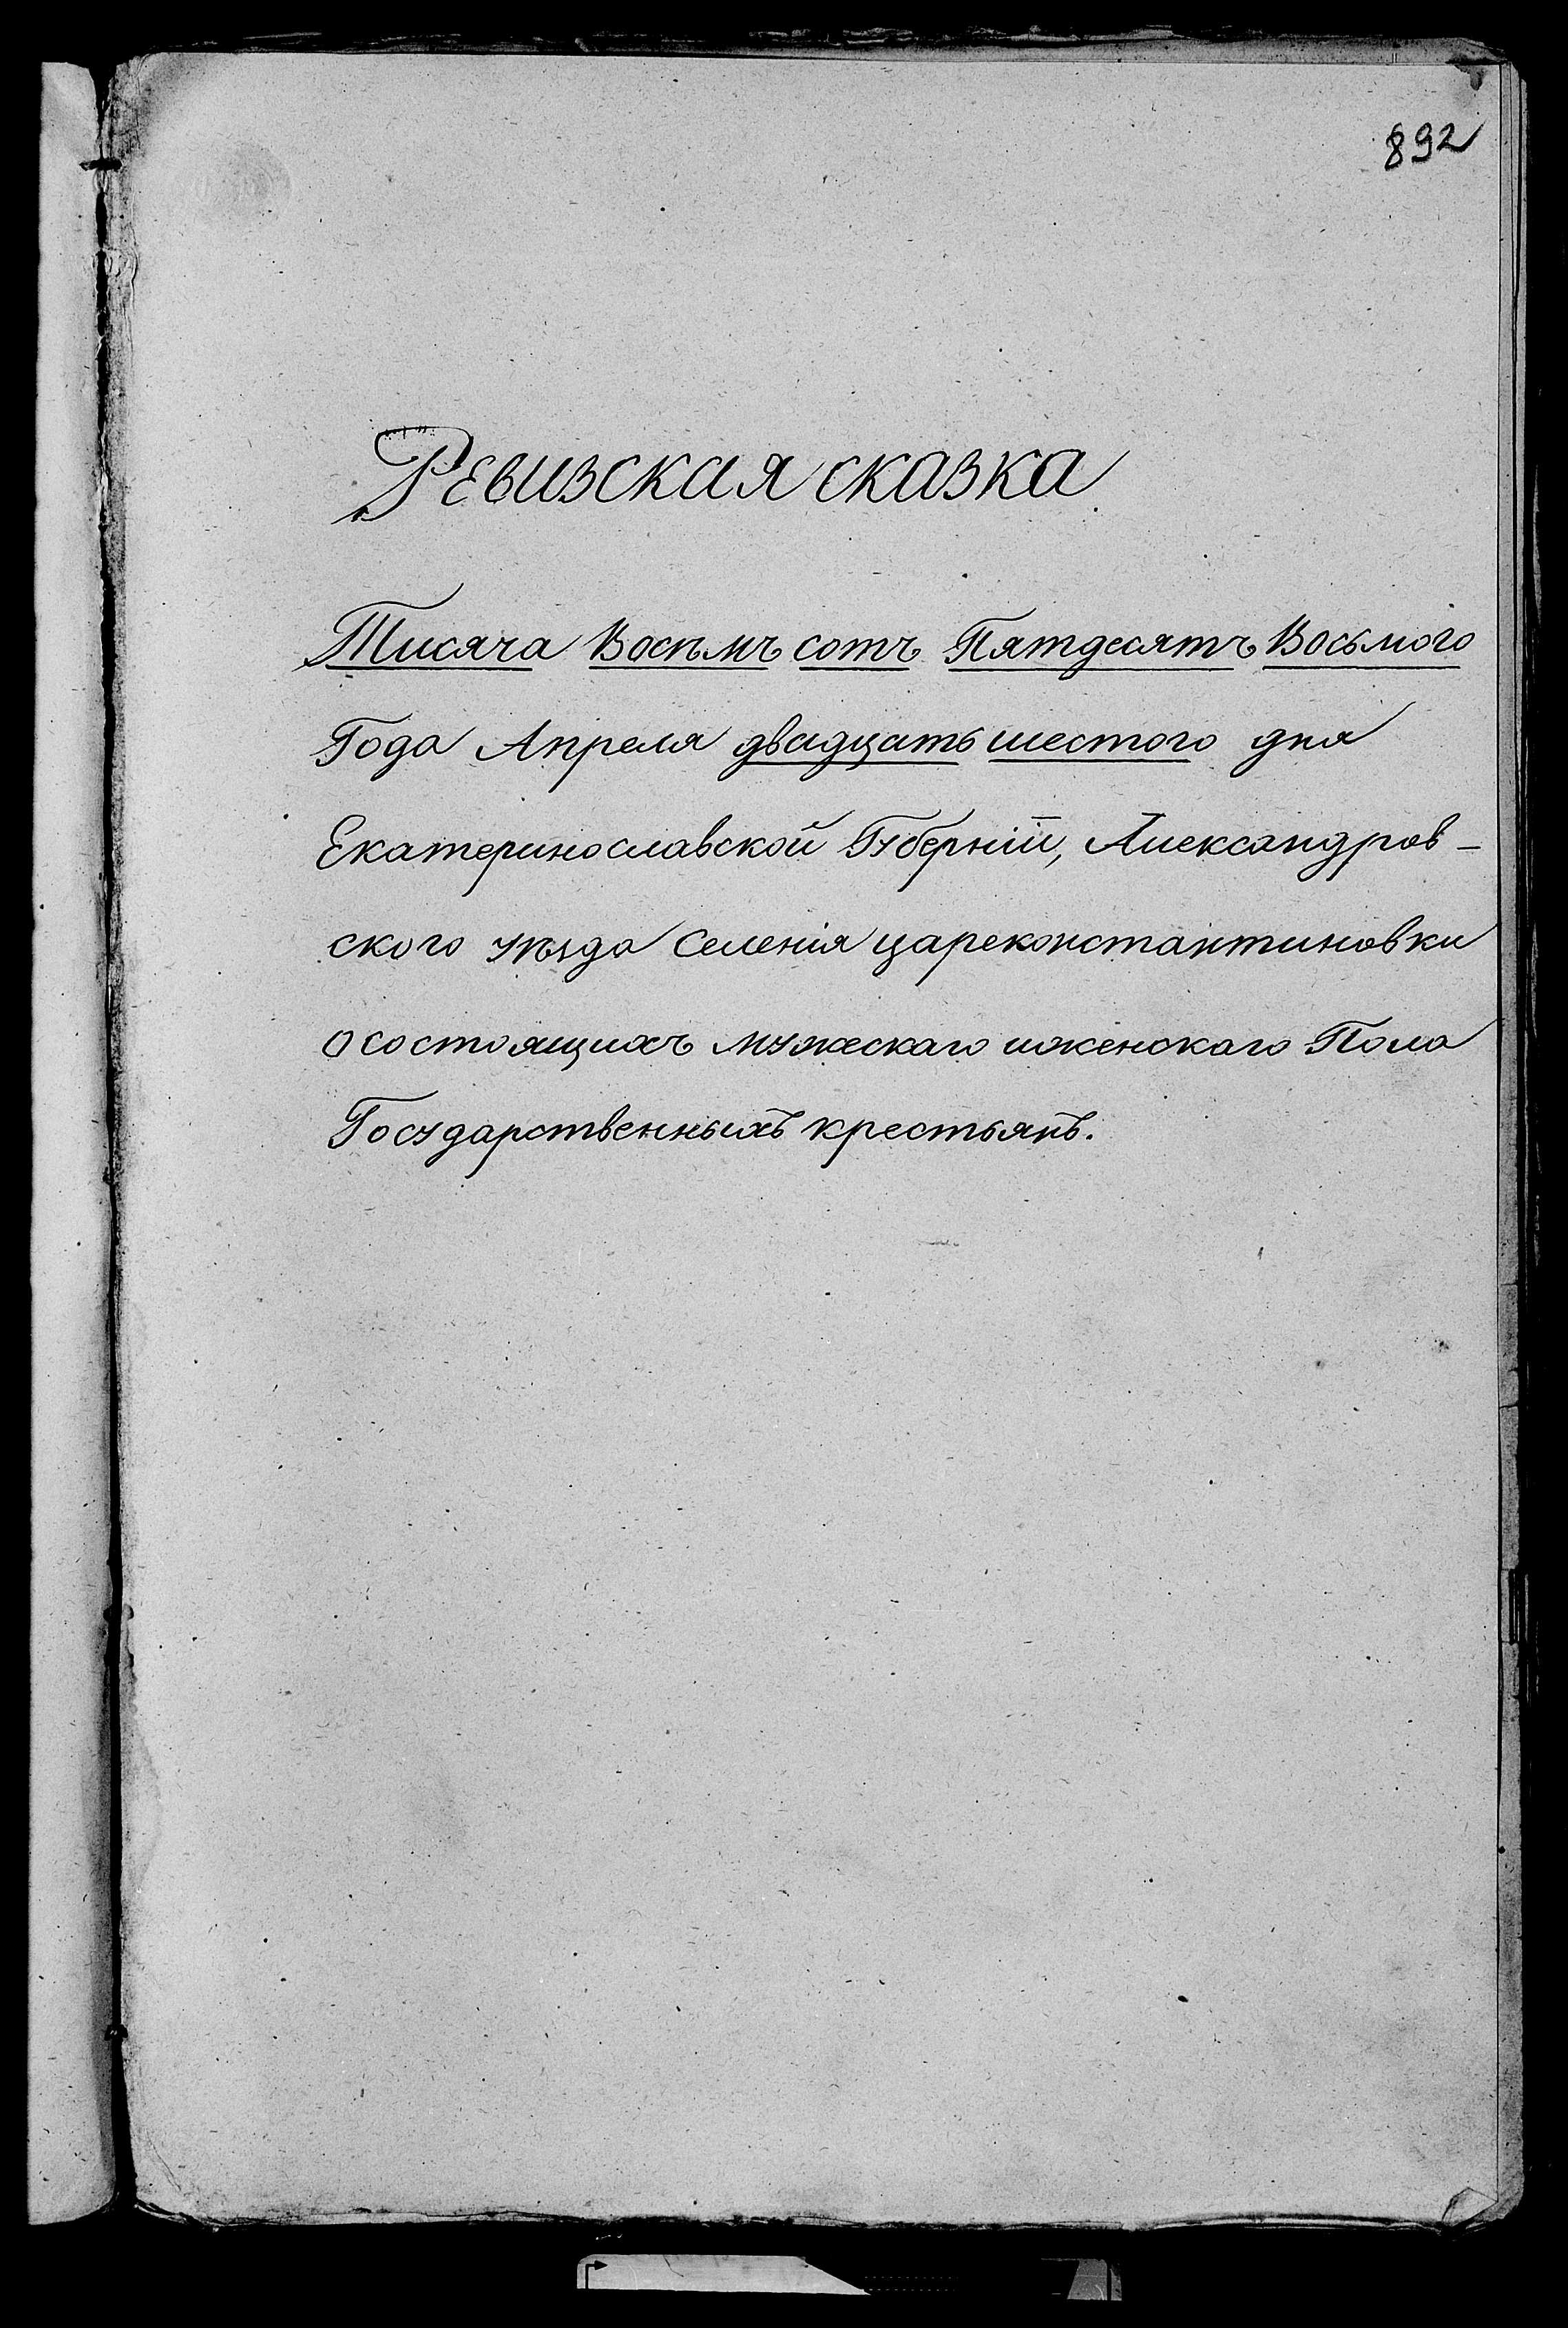 892
Ревизская сказка
Тисяча Восѣмъ сотъ Пятдесятъ Восьмого
Года Апреля двадцать шестого дня
Екатеринославской Губерніи, Александров-
ского уѣзда Селенія цареконстантиновки
о состоящихъ мужескаго иженскаго Пола
Государственныхъ крестьянъ.